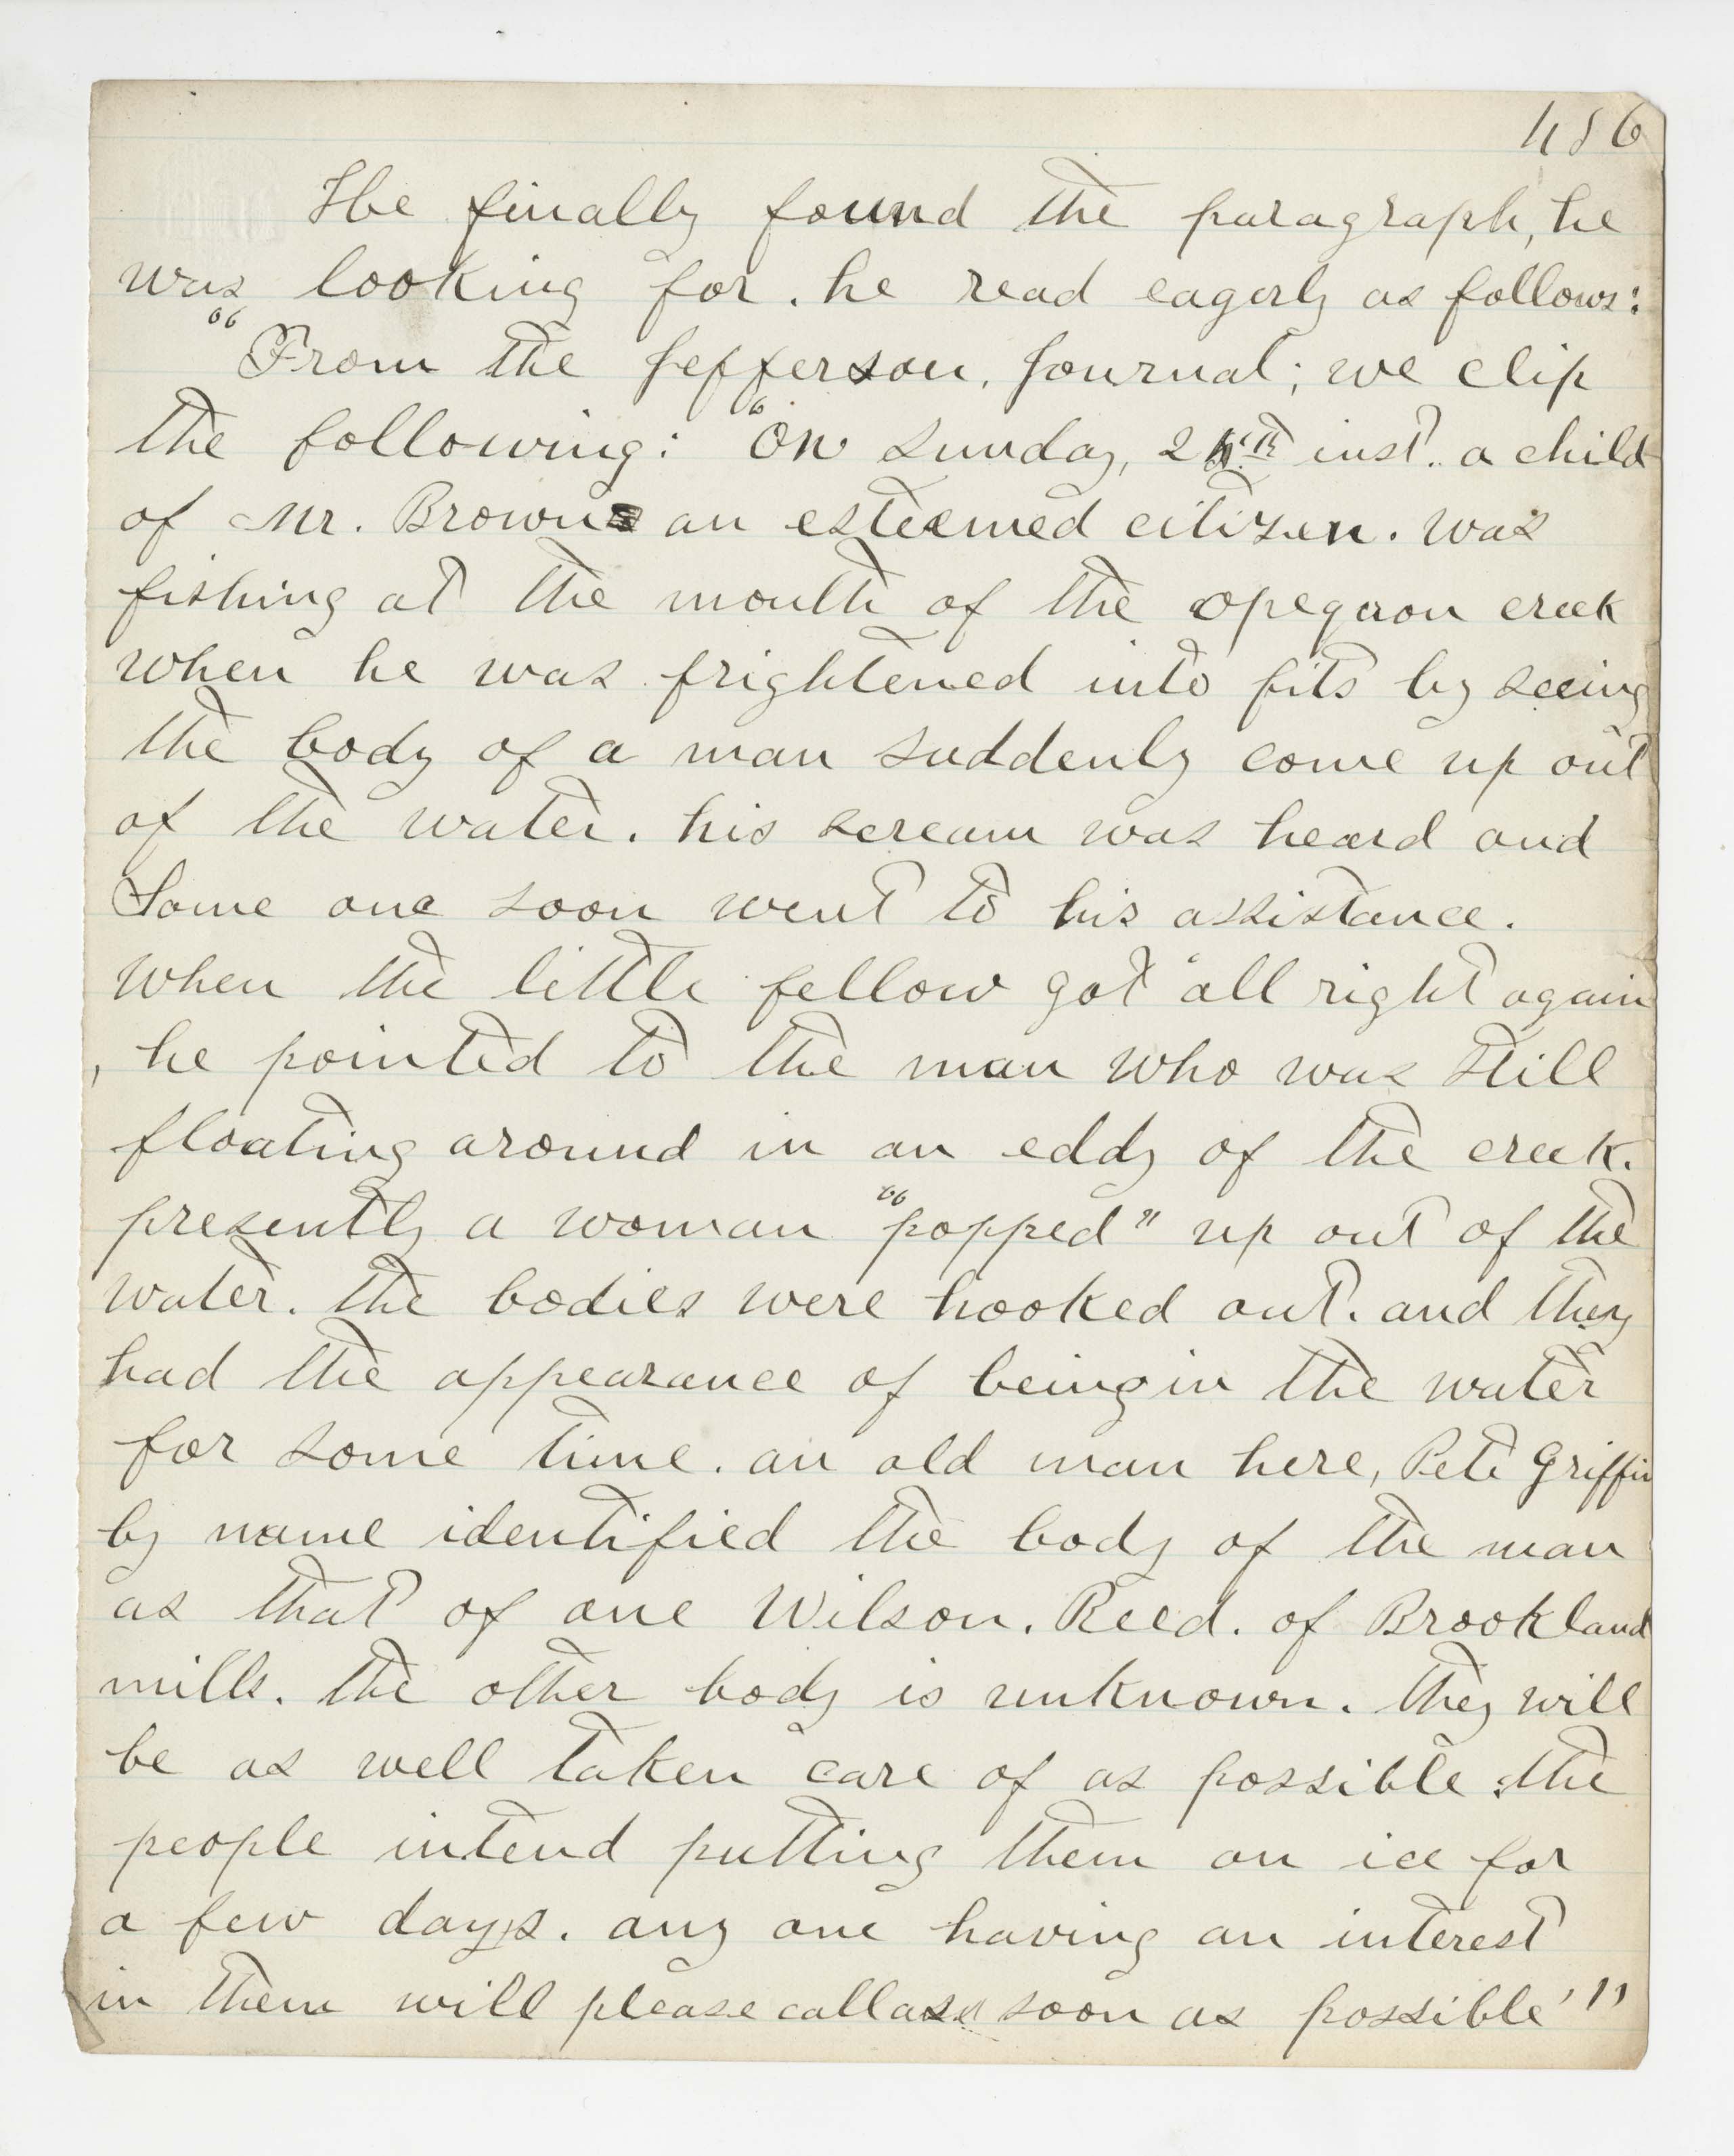 486
He finally found the paragraph, he
was looking for. he read eagerly as follows:
"From the Jefferson. Journal; we clip
the following: 'On Sunday, 24th inst. a child
of Mr. Brown an esteemed citizen. was
fishing at the mouth of the opequon creek
when he was frightened into fits by seeing
the body of a man suddenly come up out
of the water. his scream was heard and
Some one soon went to his assistance.
When the little fellow got all right again
, he pointed to the man who was still
floating around in an eddy of the creek.
presently a woman "popped" up out of the
water. the bodies were hooked out. and they
had the appearance of being in the water
for some time. an old man here, Pete Griffin
by name identified the body of the man
as that of one Wilson. Reed. of Brookland
mills. the other body is unknown. they will
be as well taken care of as possible. the
people intend putting them on ice for
a few days. any one having an interest
in them will please call as soon as possible' "